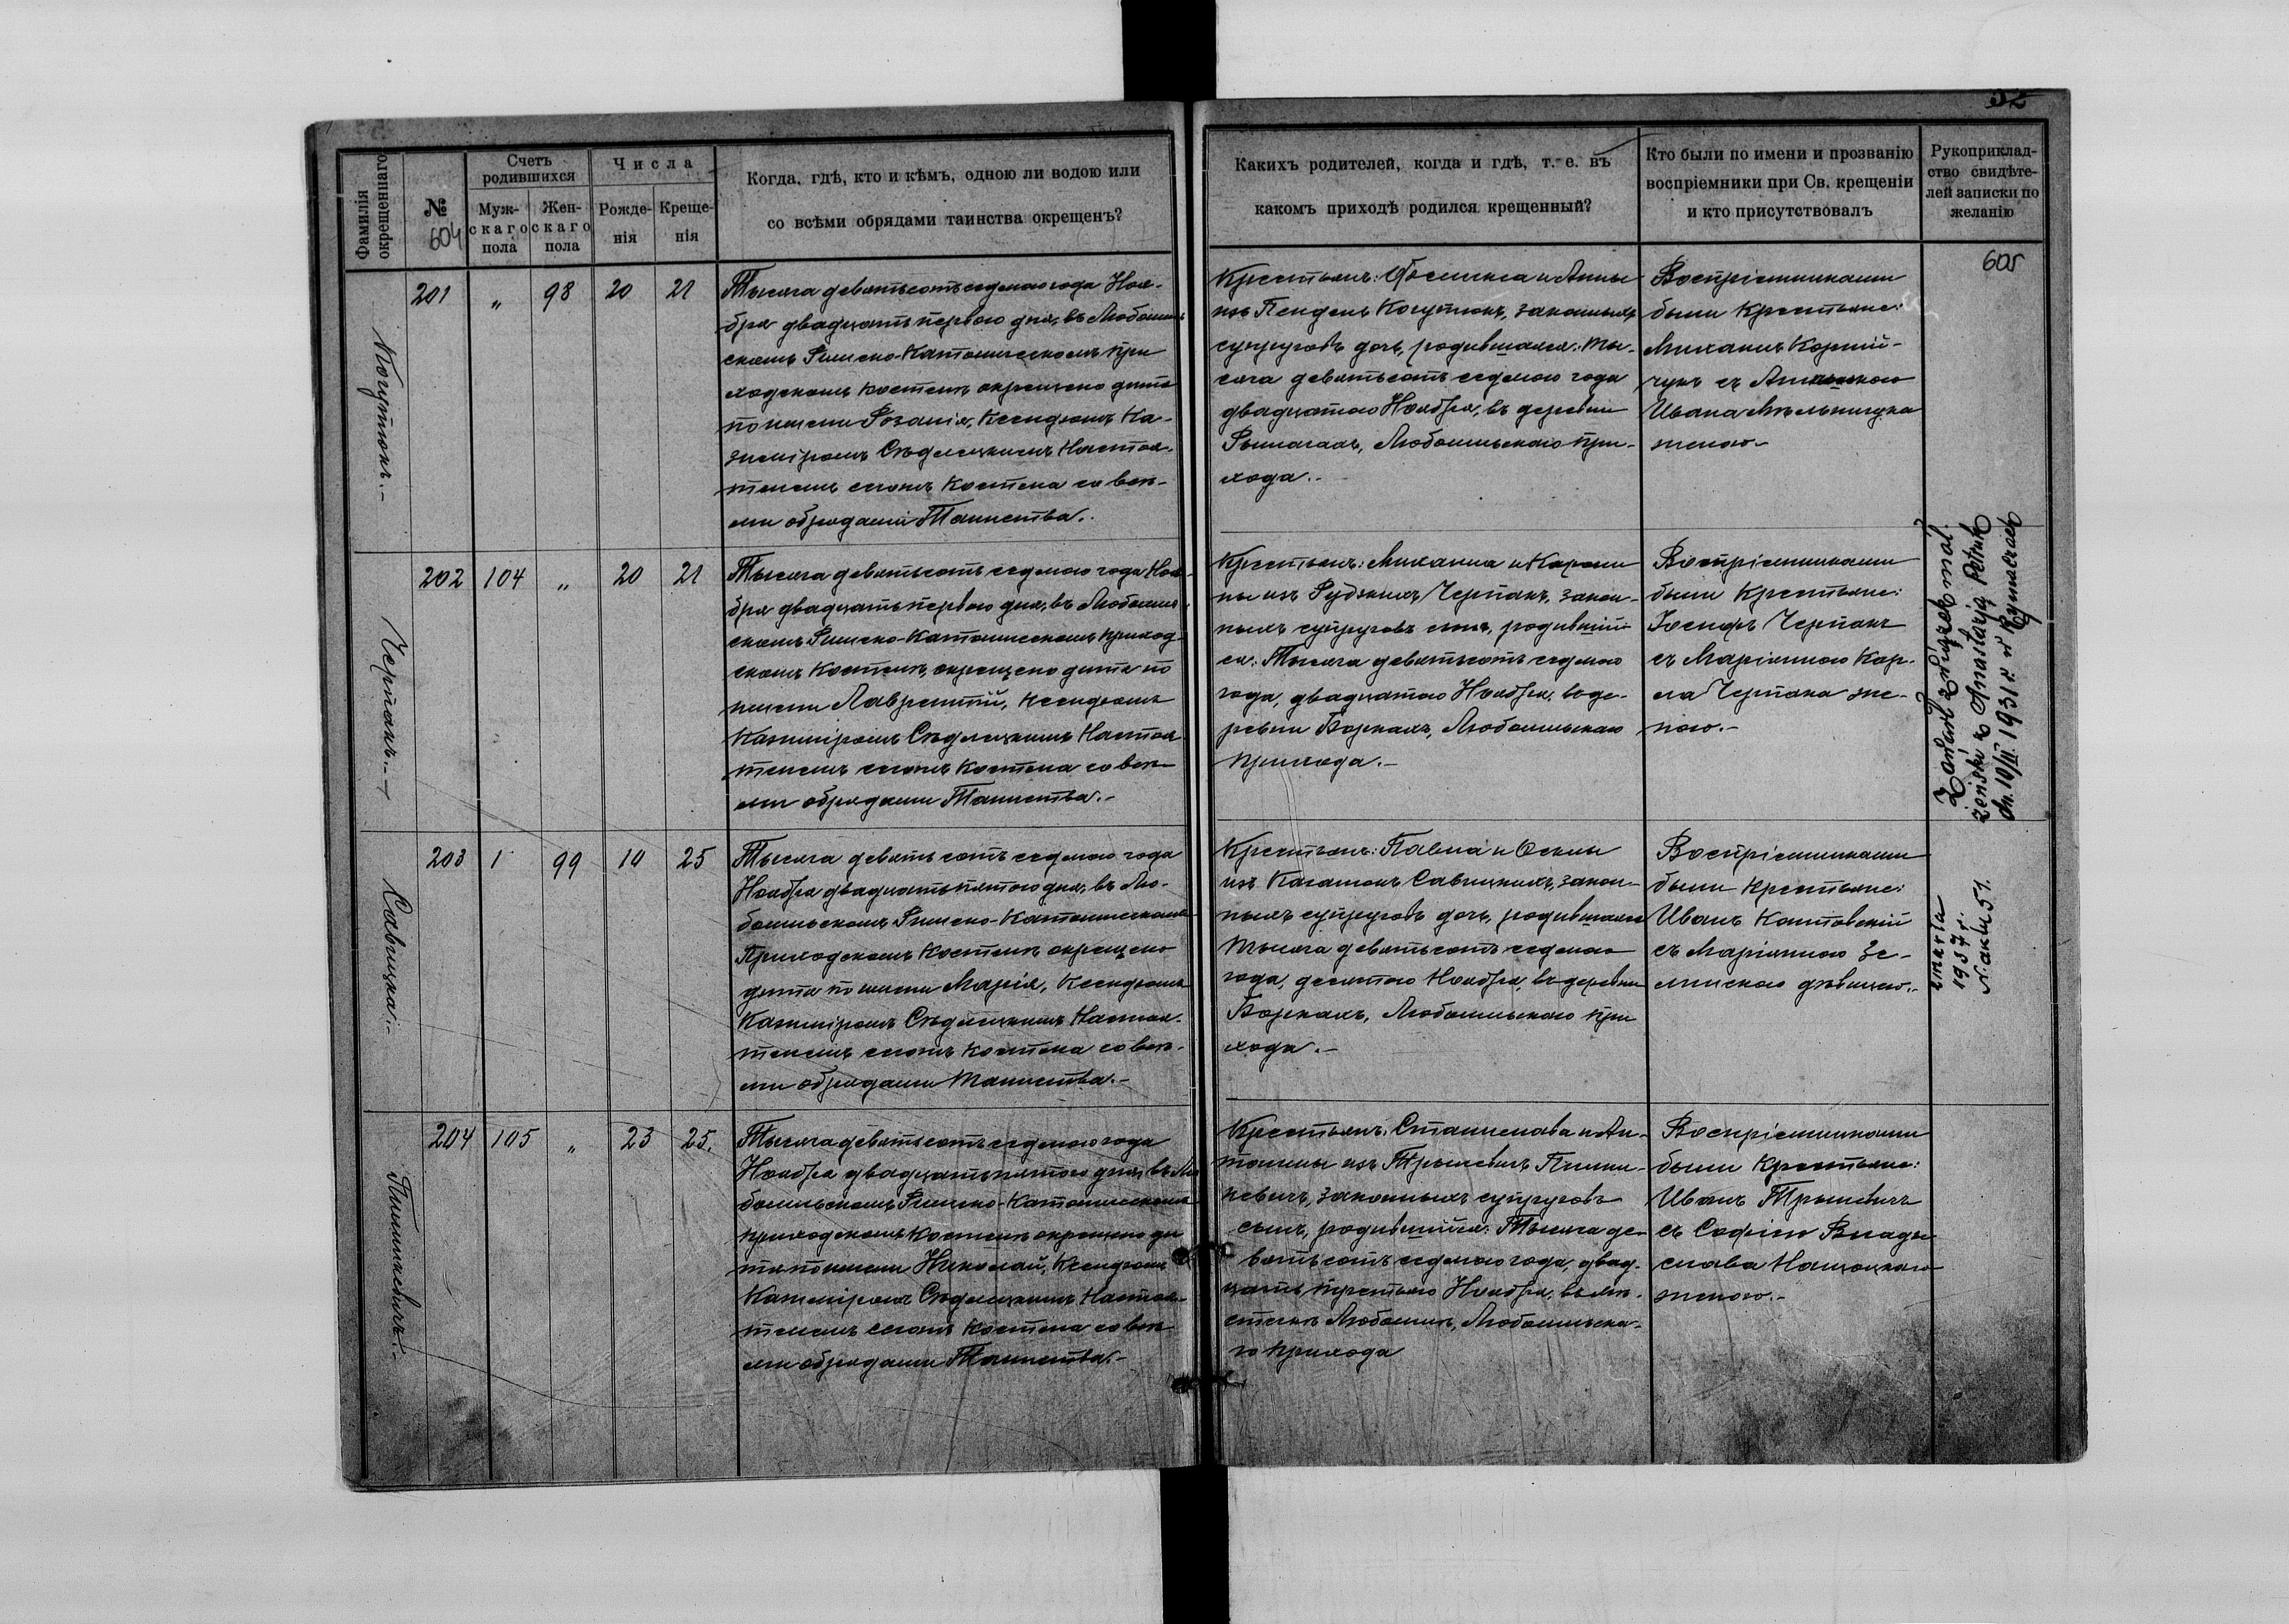 52
Фамилія окрещеннаго
№
604
Счетъ родившихся
Муж-скаго пола
Жен-скаго пола
Числа
Рожде-нія
Креще-нія
Когда, гдѣ, кто и кѣмъ, одною ли водою или
со всѣми обрядами таинства окрещенъ?
Какихъ родителей, когда и гдѣ, т. е. въ
какомъ приходѣ родился крещенный?
Кто были по имени и прозванію
воспріемники при Св. крещеніи
и кто присутствовалъ
Рукоприклад-
ство свидѣте-
лей записки по
желанію
605
Когутюкъ.-
201 „ 98 20 21
Тысяча девятьсотъ седьмого года Ноя-
бря двадцать перваго дня, въ Любомль-
скомъ Римско-Католическомъ при
ходскомъ Костелѣ окрещено дитя
по имени Розалія, Ксендзомъ Ка-
зиміромъ Сѣдлецкимъ Настоя-
телемъ сегожъ Костела со всѣ-
ми обрядами Таинства.-
Крестьянъ: Феликса и Анны
изъ Когутюкъ, законныхъ
супруговъ дочь, родившаяся: Ты-
сяча девятьсотъ седьмого года
двадцатаго Ноября, въ деревни
Рымачахъ, Любомльскаго при-
хода.-
Воспріемниками
были Крестьяне:
Михаилъ Корній-
чукъ съ
Ивана Мѣльничука
женою.-
Черпакъ.-
202 104 „ 20 21
Тысяча девятьсотъ седьмого года Ноя-
бря двадцать перваго дня, въ Любомль-
скомъ Римско-Католическомъ приход-
скомъ Костелѣ, окрещено дитя по
имени Лаврентій, Ксендзомъ
Казиміромъ Сѣдлецкимъ Настоя
телемъ сегожъ Костела со всѣ-
ми обрядами Таинства.-
Крестьянъ: Михаила и Кароли
ны изъ Рудзкихъ Черпакъ, закон-
ныхъ супруговъ сынъ, родившій-
ся: Тысяча девятьсотъ седьмого
года, двадцатаго Ноября, въ де-
ревни Боркахъ, Любомльскаго
прихода.-
Воспріемниками
были Крестьяне:
Іосифъ Черпакъ
съ Маріанною Кар-
ла Черпака же-
ною.-
Zawarł związek mał
żeński z Anastazją Petruk
dn. 10/II 1931 r. w Rymaczach
Савицкая.-
203 1 99 10 25
Тысяча девять сотъ седьмого года
Ноября двадцать пятаго дня, въ Лю-
бомльскомъ Римско-Католическомъ
Приходскомъ Костелѣ окрещено
дитя по имени Марія, Ксендзомъ
Казиміромъ Сѣдлецкимъ Настоя-
телемъ сегожъ Костела со всѣ-
ми обрядами Таинства.-
Крестьянъ: Павла и
изъ Савицкихъ, закон-
ныхъ супруговъ дочь, родившаяся
Тысяча девятьсотъ седьмого
года, десятаго Ноября, въ деревни
Боркахъ, Любомльскаго при
хода.-
Воспріемниками
были Крестьяне:
Иванъ
съ Маріанною Зе-
линскою дѣвицею.-
zmarła
1937 r.
N. aktu 51.
Пилинкевичъ.-
204 105 „ 23 25.
Тысяча девятьсотъ седьмого года
Ноября двадцать пятаго дня, въ Лю
бомльскомъ Римско-Католическомъ
приходскомъ Костелѣ окрещено ди
тя по имени Николай, Ксендзомъ
Казиміромъ Сѣдлецкимъ Настоя-
телемъ сегожъ Костела со всѣ-
ми обрядами Таинства.-
Крестьянъ: Станислава и Ан-
тонины изъ Пилин-
кевичъ, законныхъ супруговъ
сынъ, родившійся: Тысяча де-
вятьсотъ седьмого года, двад-
цать третьяго Ноября, въ мѣ-
стечкѣ Любомлѣ, Любомльска-
го прихода
Воспріемниками
были Крестьяне:
Иванъ
съ Софіею Влади
слава
женою.-